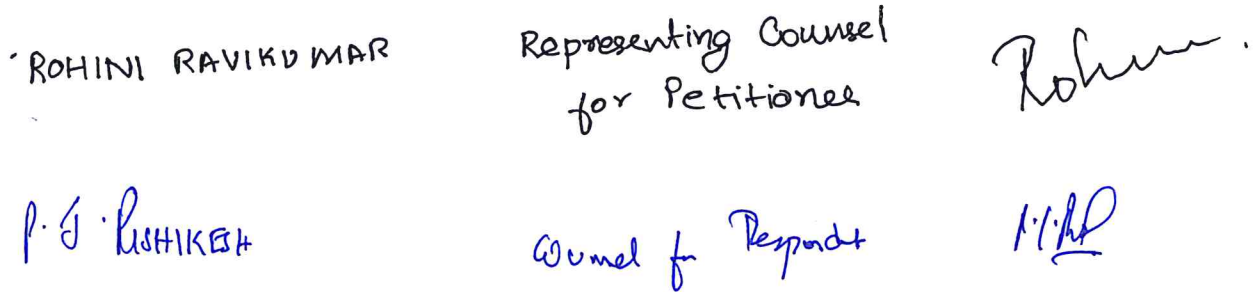 ROHINI RAVIKUMAR
Representing Counsel
for Petitioner
Rohini
P. J. RISHIKESH
Counsel for Respondent